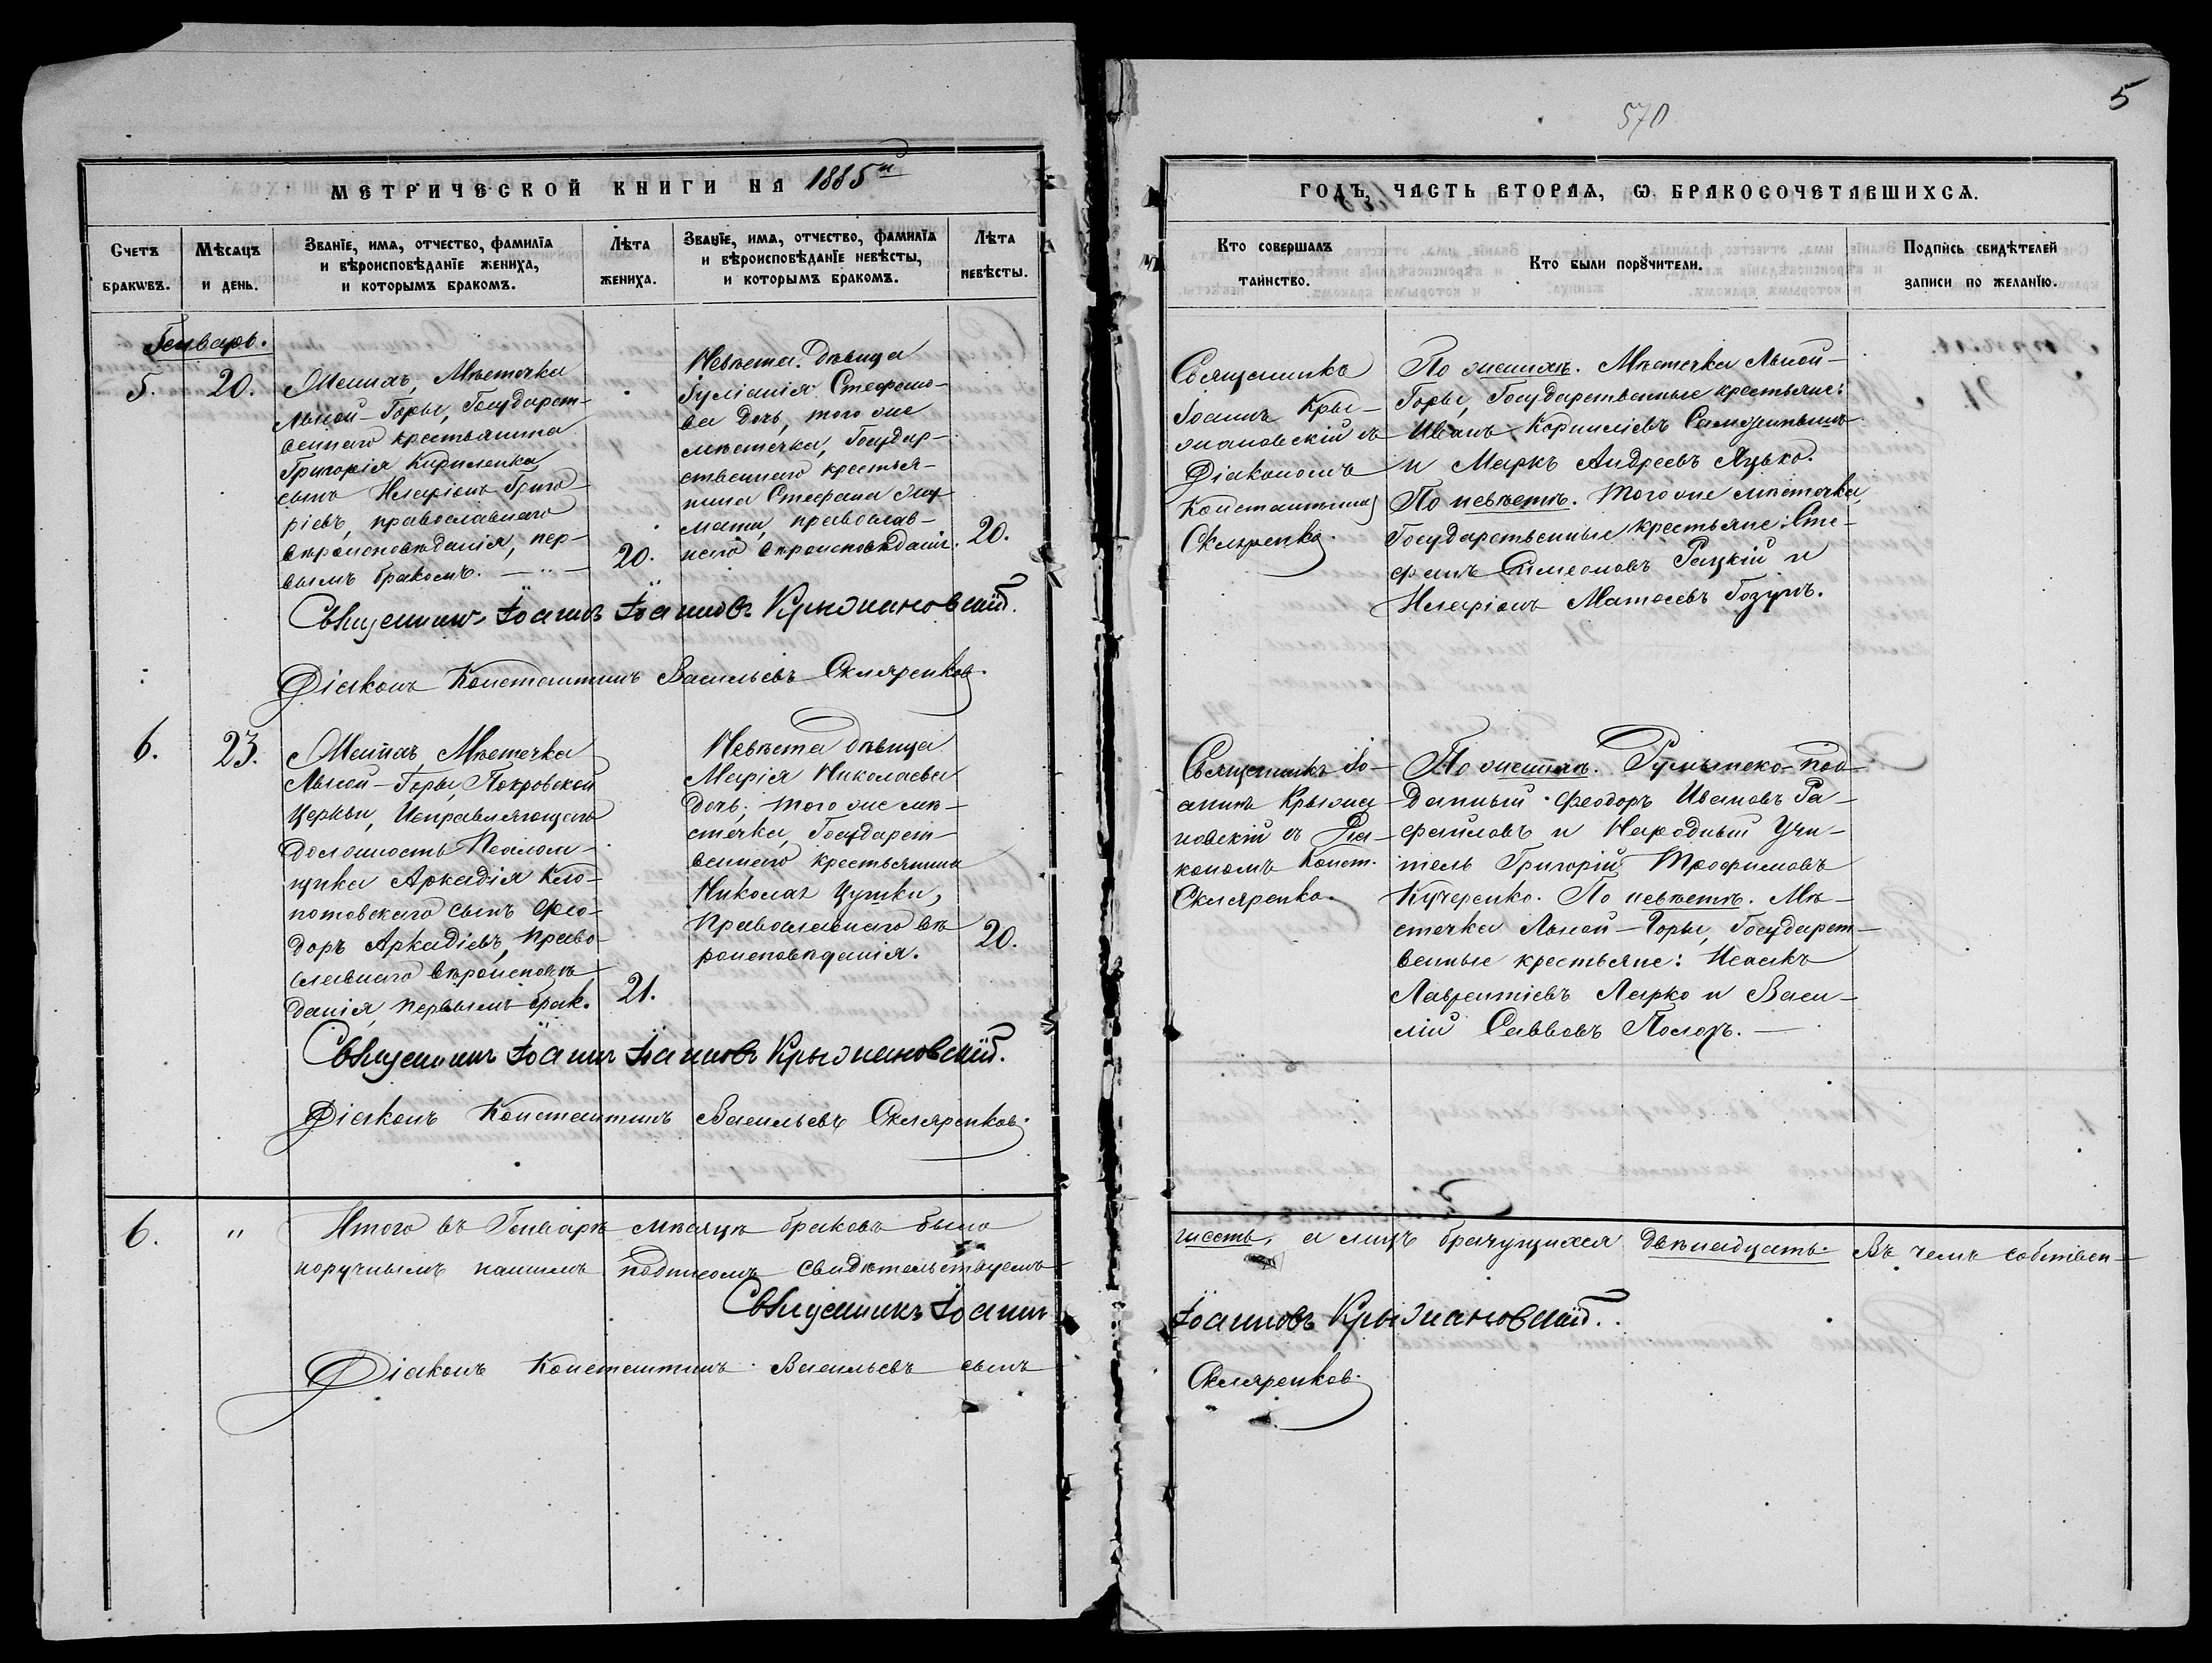 5
570
МЕТРИЧЕСКОЙ КНИГИ НА 1885й
ГОДЪ, ЧАСТЬ ВТОРАЯ, Ѡ БРАКОСОЧЕТАВШИХСѦ.
Счетъ браковъ.
Мѣсяцъ и день.
Званїе, имя, отчество, фамилїя
и вѣроисповѣданїе жениха,
и которымъ бракомъ.
Лѣта
жениха.
Званїе, имя, отчество, фамилїя
и вѣроисповѣданїе невѣсты,
и которымъ бракомъ.
Лѣта
невѣсты.
Кто совершалъ
таинство.
Кто были порꙋчители.
Подпись свидѣтелей
записи по желанїю.
Генварь.
5.
20.
Женихъ, Мѣстечка
Лысой-Горы, Государст-
веннаго крестьянина
Григорія Кириленка
сынъ Иларіонъ Григо-
ріевъ, православнаго
вѣроисповѣданія, пер-
вымъ бракомъ.
20.
Невѣста: дѣвица
Іуліанія Стефано-
ва дочь, того же
мѣстечка, Государ-
ственнаго крестья-
нина Стефана
православ-
наго вѣроисповѣданія.
20.
Священникъ
Іоаннъ Кры-
жановскій съ
Діакономъ
Константиномъ
Скляренко.
По женихѣ. Мѣстечка Лысой-
Горы, Государственные крестьяне:
Иванъ Корниліевъ
и Маркъ Андреевъ Яцько.
По невѣстѣ. Того же мѣстечка,
Государственные крестьяне: Сте-
фанъ Симеоновъ Рацкій и
Иларіонъ Матѳеевъ Гозунъ.
Священникъ Іоаннъ Іоанновъ Крыжановскій.
Діаконъ Константинъ Васильевъ Скляренковъ.
6.
23.
Женихъ, Мѣстечка
Лысой-Горы, Покровской
Церкви, Исправляющаго
должность Псалом-
щика Аркадія Кло-
потовскаго сынъ Ѳео-
доръ Аркадіевъ, Право-
славнаго вѣроисповѣ-
данія, первымъ брак.
21.
Невѣста дѣвица
Марія Николаева
дочь, того же мѣ-
стечка, Государст-
веннаго крестьянина
Николая Цушки,
Православнаго вѣ-
роисповѣданія.
20.
Священникъ Іо-
аннъ Крыжа-
новскій съ Діа-
кономъ Конст.
Скляренко.
По женихѣ. Румынско-под-
данный Ѳеодоръ Ивановъ Ра-
фаиловъ и Народный Учи-
тель Григорій Трофимовъ
Кучеренко. По невѣстѣ. Мѣ-
стечка Лысой-Горы, Государст-
венные крестьяне: Исаакъ
Лаврентіевъ Ларко и Васи-
лій Саввовъ
Священникъ Іоаннъ Іоанновъ Крыжановскій.
Діаконъ Константинъ Васильевъ Скляренковъ.
6.
"
Итого въ Генварѣ мѣсяцѣ браковъ было
шесть, а лицъ брачущихся двѣнадцать. Въ чемъ собствен-
норучнымъ нашимъ подписомъ свидѣтельствуемъ
Священникъ Іоаннъ
Іоанновъ Крыжановскій.
Діаконъ Константинъ Васильевъ сынъ
Скляренковъ.